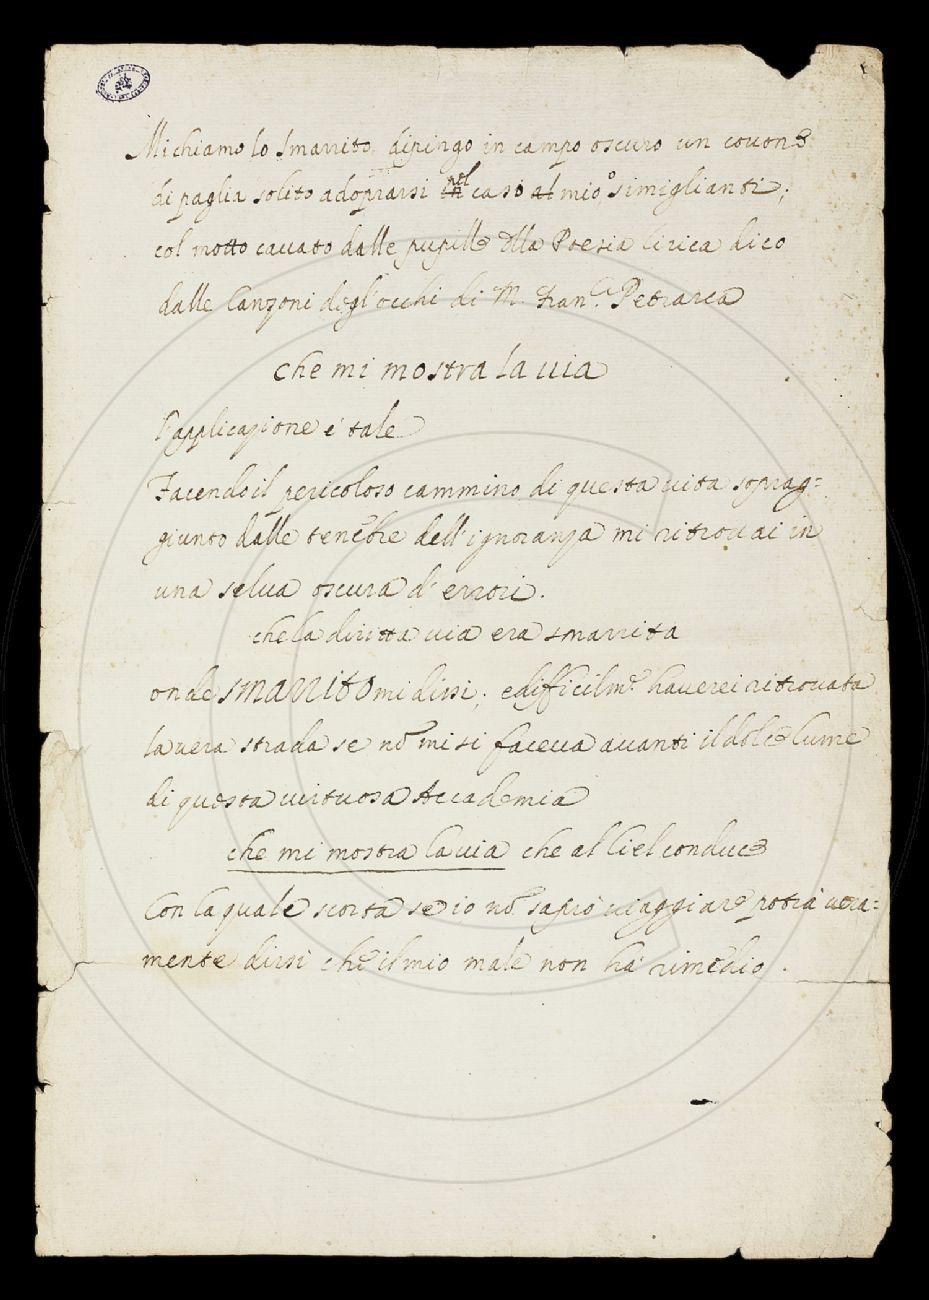 Mi chiamo lo Smarrito, dipingo in campo oscuro un covone
di paglia solito adoprarsi in nel caso al mio simiglianti;
col motto cavato dalle pupille della Poesia lirica dico
dalle Canzoni degl'occhi di M. Fran.co Petrarca
che mi mostra la via
l'applicazione è tale
Facendo il pericoloso cammino di questa vita soprag=
giunto dalle tenebre dell'ignoranza mi ritrovai in
una selva oscura d'errori.
che la diritta via era smarrita
onde smarrito mi dissi; e difficilm.e haverei ritrovata
la vera strada se nō mi si faceva avanti il dolce lume
di questa virtuosa Accademia
che mi mostra la via che al Ciel conduce
Con la quale scorta se io nō saprò viaggiare potrà vera=
mente dirsi che il mio male non hà rimedio.